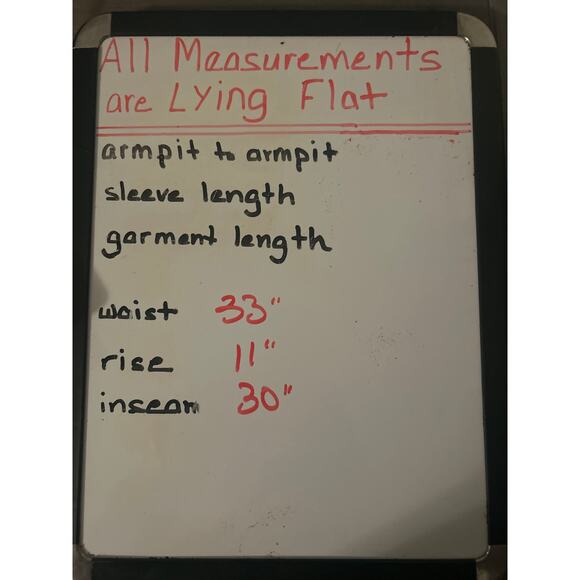 All Measurements
are Lying Flat
armpit to armpit
sleeve length
garment length
waist 33"
rise 11"
inseam 30"